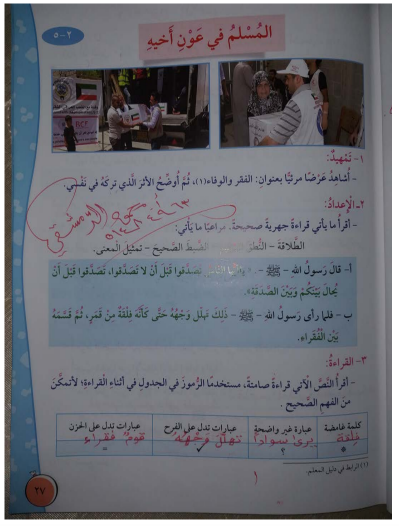 ٢-٥
المُسْلمُ في عَوْنِ أَخيهِ
١- تَمْهيدٌ:
- أُشاهِدُ عَرْضًا مرئيًّا بعنوانِ: الفقر والوفاء(١)، ثُمَّ أُوضِّحُ الأثرَ الَّذي تركَهُ في نَفْسي.
٢- الإعدادُ:
- أقرأُ ما يأتي قراءةً جهريةً صحيحةً. مراعيًا ما يَأتي:
الطَّلاقةَ - الضَّبْطَ الصَّحيحَ - تمثيلَ المعنى.
أ - قالَ رَسولُ اللهِ - ﷺ -: تَصَدَّقوا قَبْلَ أنْ لا تَصَدَّقوا، تَصَدَّقوا قَبْلَ أنْ
يُحالَ بَيْنَكُمْ وَبَيْنَ الصَّدَقةِ».
ب - فلما رأى رَسولُ اللهِ - ﷺ - ذلِكَ تَهَلّلَ وَجْهُهُ حَتَّى كَأَنَّهُ فِلْقَةٌ مِنْ قَمَرٍ، ثُمَّ قَسَمَهُ
بَيْنَ الْفُقَراءِ.
٣- القراءةُ:
- أقرأُ النَّصَّ الآتي قراءةً صامتةً، مستخدمًا الرُّموزَ في الجدولِ في أثناءِ القراءةِ؛ لأتمكَّنَ
منَ الفهمِ الصَّحيحِ.
كلمة غامضة عبارة غير واضحة عبارات تدل على الفرح عبارات تدل على الحزن
فلقة يرى سوادا تهلل وجهه قوم فقراء
* ؟ ✓ =
(١) الرابط في دليل المعلم.
٢٧